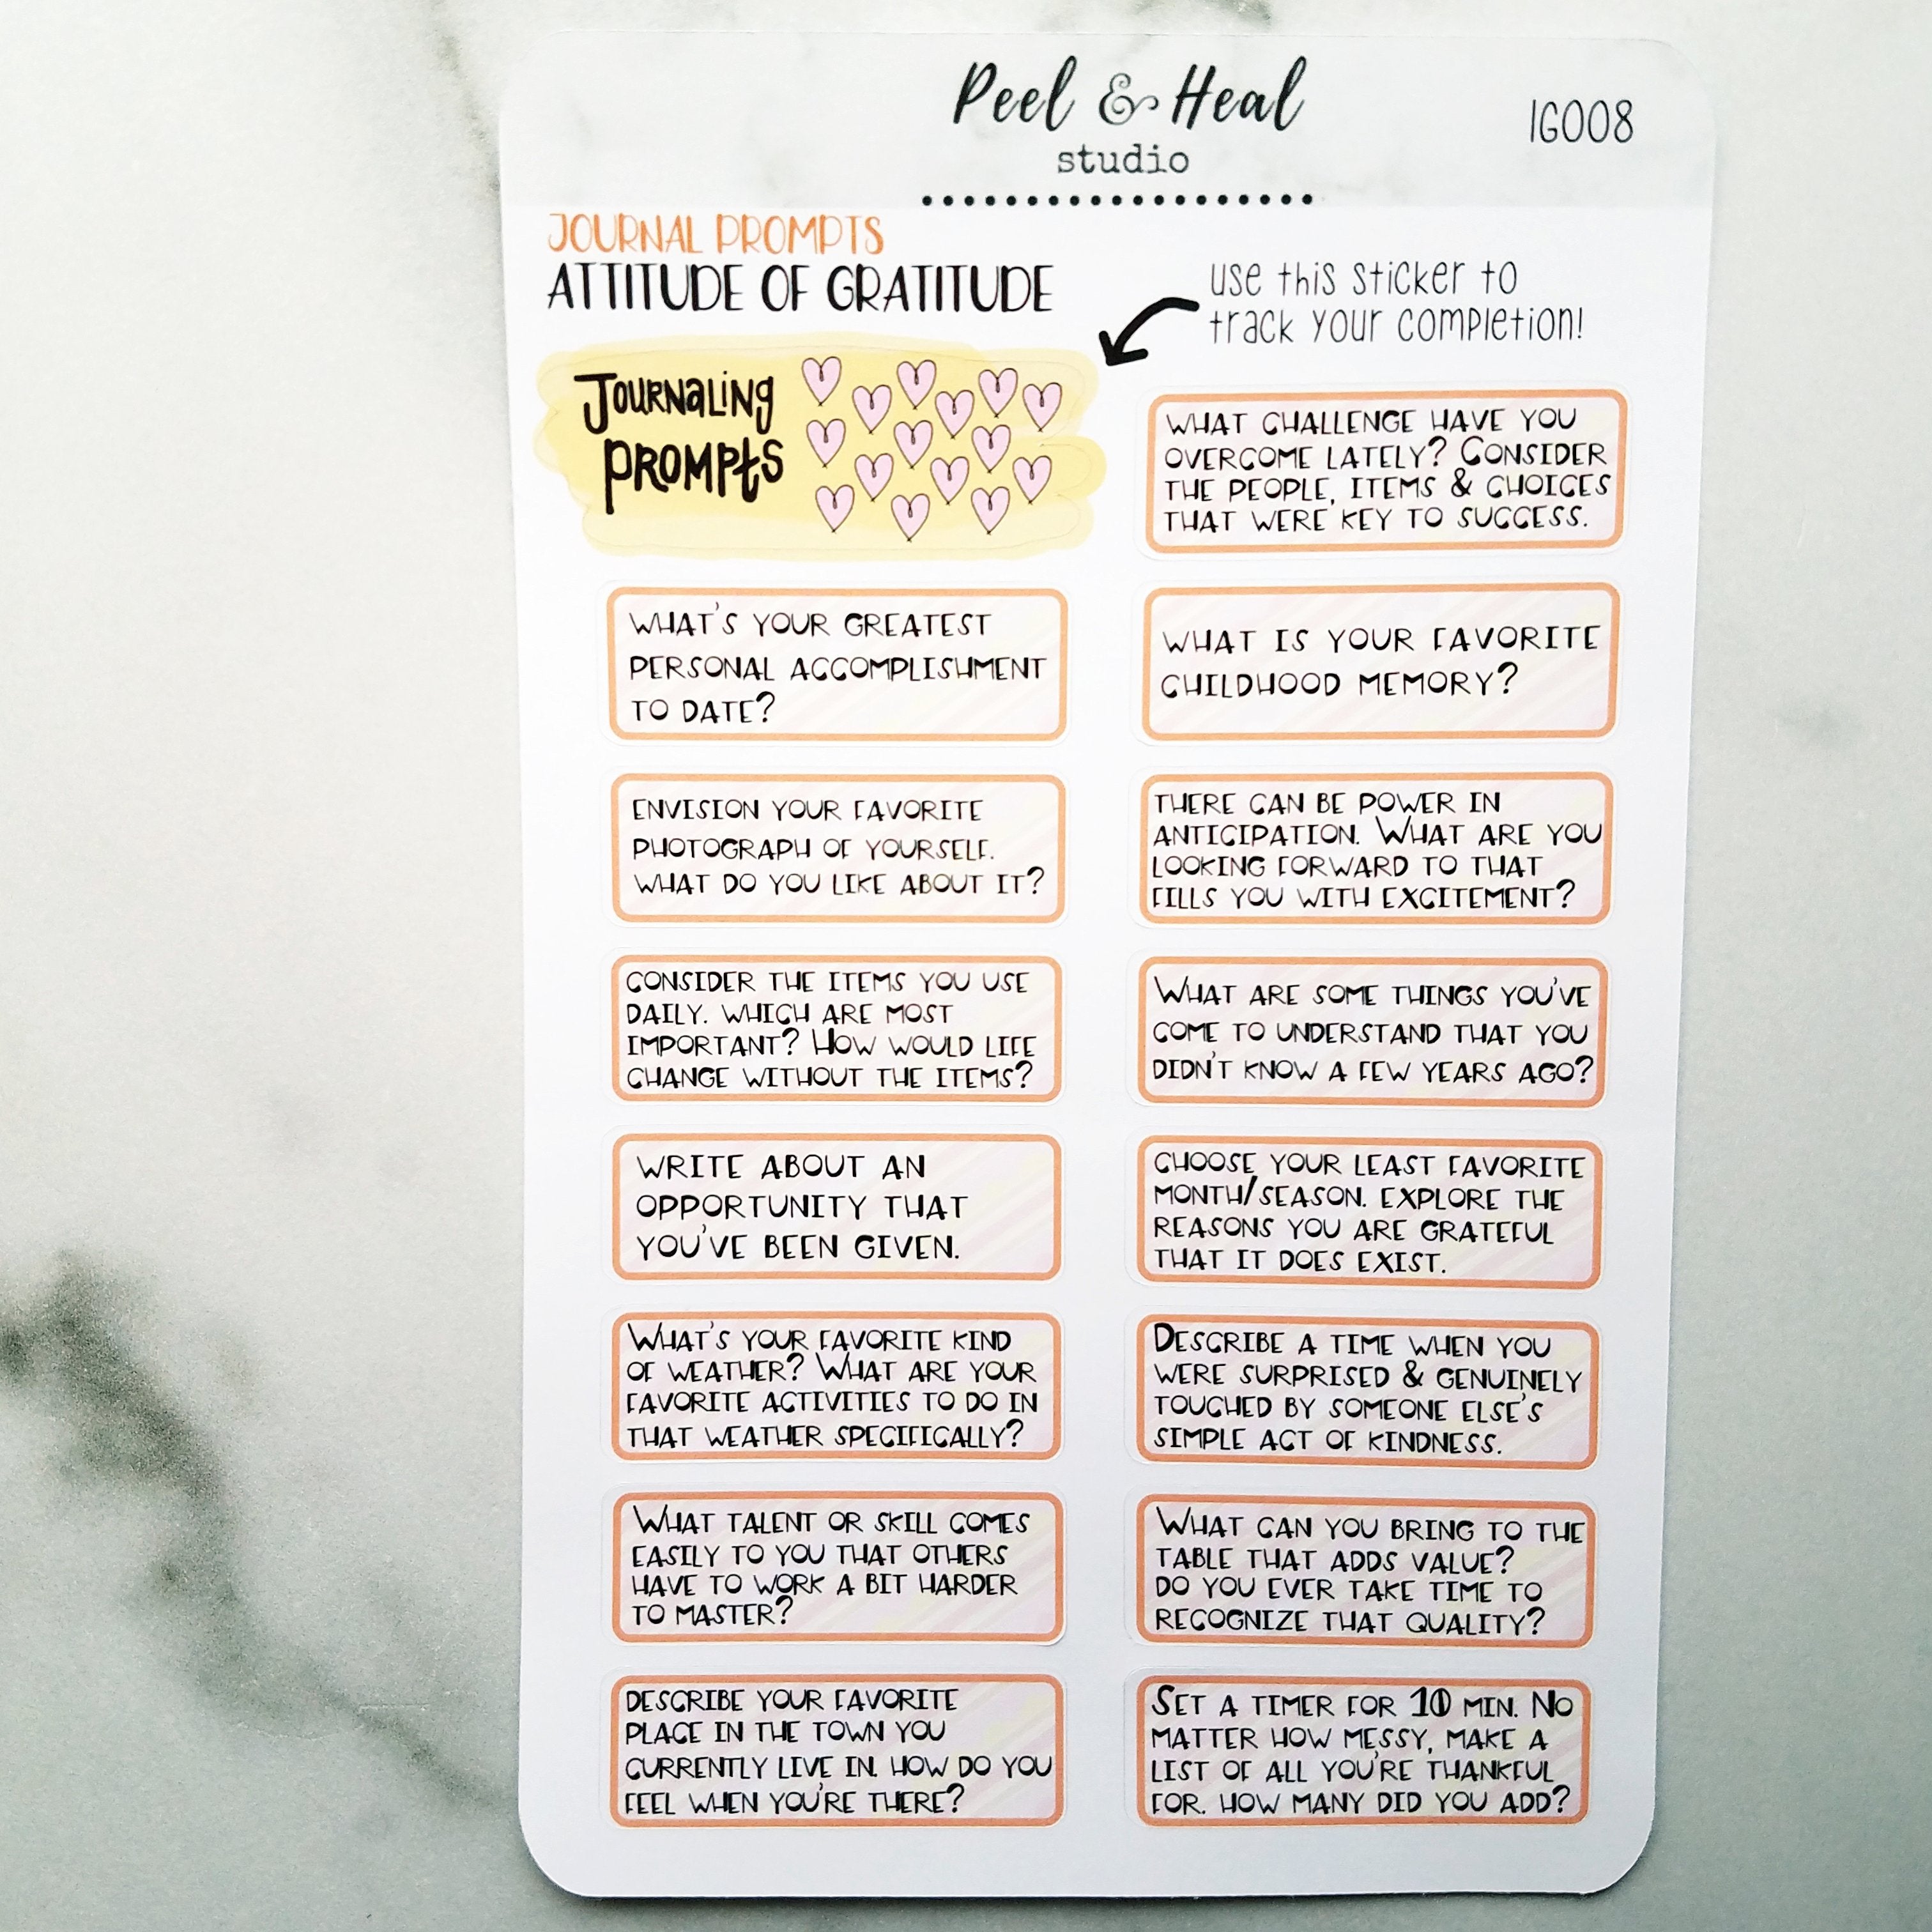 Peel & Heal
studio
IG008
JOURNAL PROMPTS
ATTITUDE OF GRATITUDE
use this sticker to
track your completion!
Journaling
Prompts
WHAT CHALLENGE HAVE YOU
OVERCOME LATELY? CONSIDER
THE PEOPLE, ITEMS & CHOICES
THAT WERE KEY TO SUCCESS.
WHAT'S YOUR GREATEST
PERSONAL ACCOMPLISHMENT
TO DATE?
WHAT IS YOUR FAVORITE
CHILDHOOD MEMORY?
ENVISION YOUR FAVORITE
PHOTOGRAPH OF YOURSELF.
WHAT DO YOU LIKE ABOUT IT?
THERE CAN BE POWER IN
ANTICIPATION. WHAT ARE YOU
LOOKING FORWARD TO THAT
FILLS YOU WITH EXCITEMENT?
CONSIDER THE ITEMS YOU USE
DAILY. WHICH ARE MOST
IMPORTANT? HOW WOULD LIFE
CHANGE WITHOUT THE ITEMS?
WHAT ARE SOME THINGS YOU'VE
COME TO UNDERSTAND THAT YOU
DIDN'T KNOW A FEW YEARS AGO?
WRITE ABOUT AN
OPPORTUNITY THAT
YOU'VE BEEN GIVEN.
CHOOSE YOUR LEAST FAVORITE
MONTH/SEASON. EXPLORE THE
REASONS YOU ARE GRATEFUL
THAT IT DOES EXIST.
WHAT'S YOUR FAVORITE KIND
OF WEATHER? WHAT ARE YOUR
FAVORITE ACTIVITIES TO DO IN
THAT WEATHER SPECIFICALLY?
DESCRIBE A TIME WHEN YOU
WERE SURPRISED & GENUINELY
TOUCHED BY SOMEONE ELSE'S
SIMPLE ACT OF KINDNESS.
WHAT TALENT OR SKILL COMES
EASILY TO YOU THAT OTHERS
HAVE TO WORK A BIT HARDER
TO MASTER?
WHAT CAN YOU BRING TO THE
TABLE THAT ADDS VALUE?
DO YOU EVER TAKE TIME TO
RECOGNIZE THAT QUALITY?
DESCRIBE YOUR FAVORITE
PLACE IN THE TOWN YOU
CURRENTLY LIVE IN. HOW DO YOU
FEEL WHEN YOU'RE THERE?
SET A TIMER FOR 10 MIN. NO
MATTER HOW MESSY, MAKE A
LIST OF ALL YOU'RE THANKFUL
FOR. HOW MANY DID YOU ADD?